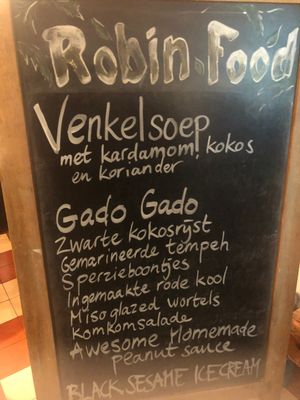 Robin Food
Venkelsoep
met kardamom, kokos
en koriander
Gado Gado
Zwarte kokosrijst
Gemarineerde tempeh
Sperzieboontjes
Ingemaakte rode kool
Miso glazed wortels
Komkomsalade
Awesome Homemade
peanut sauce
BLACK SESAME ICECREAM